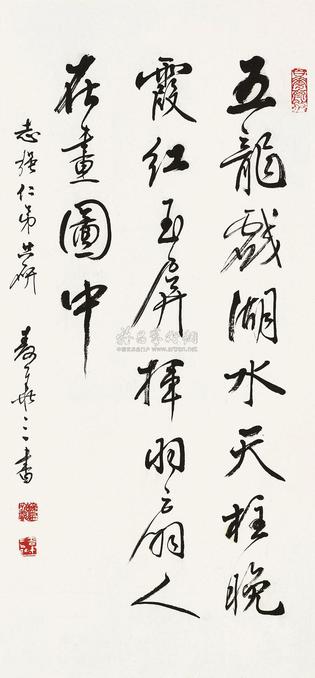 五龍戲湖水天柱晚
霞紅玉屏揮羽扇人
在畫圖中
志強仁弟共研
壽康三書